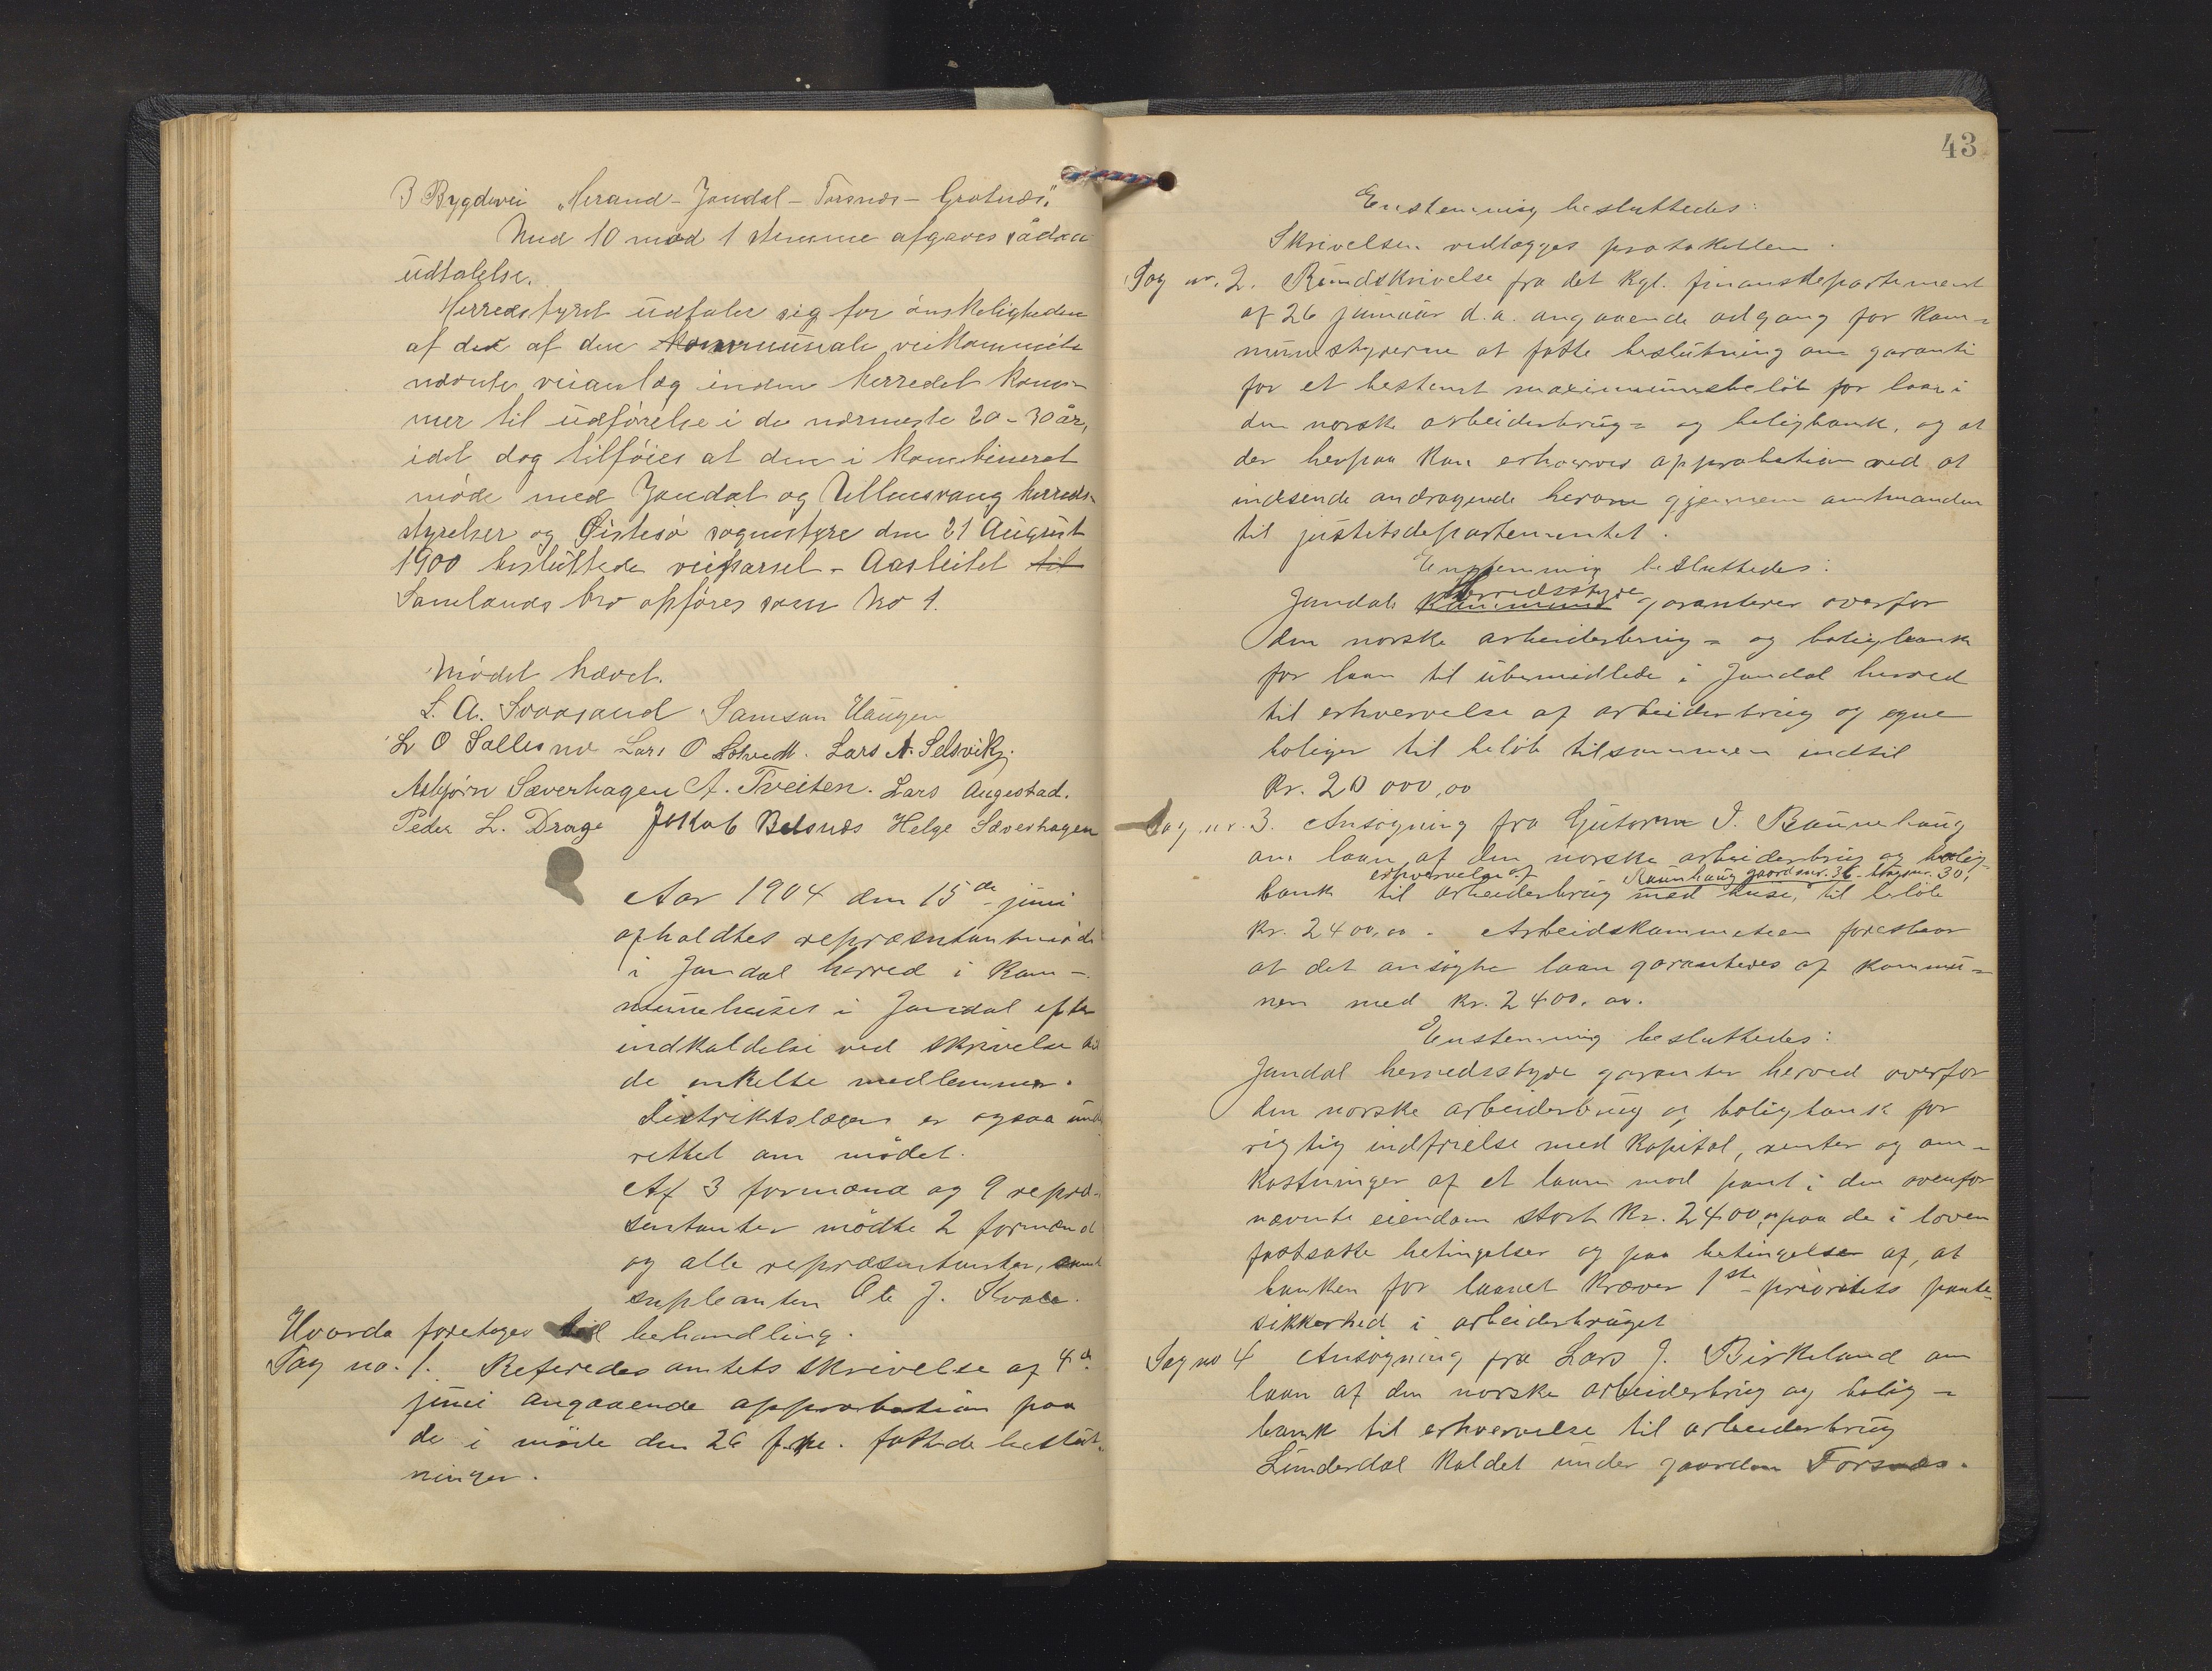 3 Bygdevei „Herand - Jondal - Torsnæs - Grotnæs".
Med 10 mod 1 stemme afgaves sådan
udtalelse.
Herredstyret udtaler sig for ønskeligheden
af det af den kommunale veikommité
nævnte veianlæg inden herredet kom-
mer til udførelse i de nærmeste 20 - 30 år,
idet dog tilføies at den i kombineret
møde med Jondal og Ullensvang herreds-
styrelser og Øistesø sognestyre den 21 August
1900 besluttede veiparsel - Aasleitet til
Samlands bro opføres som No 1.
Mødet hævet.
L. A. Svaasand Samson Haugen
L O Sollesnes Lars O Solvedt. Lars A. Selsvik.
Asbjørn Sæverhagen A. Tveiten. Lars Augestad.
Peder L. Drage Jakob Belsnæs Helge Sæverhagen
Aar 1904 den 15de juni
afholdtes repræsentantmøde
i Jondal herred i kom-
munehuset i Jondal efter
indkaldelse ved skrivelse til
de enkelte medlemmer.
Distriktslægen er ogsaa under
rettet om mødet.
Af 3 formænd og 9 repræ-
sentanter mødte 2 formænd
og alle repræsentanter, samt
supleanten Ole J. Kvale.
Hvorda foretoges til behandling.
Sag no. 1. Referedes amtets skrivelse af 4de
juni angaaende approbation paa
de i møde den 26 f. fattede beslut-
ninger.
43
Enstemmig besluttedes:
Skrivelsen vedlægges protokollen.
Sag nr. 2. Rundskrivelse fra det kgl. finansdepartement
af 26 januar d. a. angaaende adgang for kom-
munestyrerne at fatte beslutning om garanti
for et bestemt maximumsbeløb for laan i
den norske arbeiderbrug- og boligbank, og at
der herpaa kan erhverves approbation ved at
indsende andragende herom gjennem amtmanden
til justitsdepartementet.
Enstemmig besluttedes:
herredsstyre
Jondals kommune garanterer overfor
den norske arbeiderbrug- og boligbank
for laan til ubemidlede i Jondal herred
til erhvervelse af arbeiderbrug og egne
boliger til beløb tilsammen indtil
Kr. 20 000,00
Sag nr. 3. Ansøgning fra Gutorm I. Baunehaug
om laan af den norske arbeiderbrug og bolig-
erhvervelse af Raunhaug gaardsnr. 36. brugsnr. 30,
bank til arbeiderbrug med huse, til beløb
Kr. 2400,00. Arbeidskommiteen foreslaar
at det ansøgte laan garanteres af kommu-
nen med Kr. 2400,00.
Enstemmig besluttedes:
Jondal herredsstyre garanter herved overfor
den norske arbeiderbrug og boligbank for
rigtig indfrielse med kapital, renter og om-
kostninger af et laan mod pant i den ovenfor
nævnte eiendom stort Kr. 2400,00 paa de i loven
fastsatte betingelser og paa betingelse af, at
banken for laanet kræver 1ste prioritets pante-
sikkerhed i arbeiderbruget
Sag no 4 Ansøgning fra Lars J. Birkeland om
laan af den norske arbeiderbrug og bolig-
bank til erhvervelse til arbeiderbrug
Lunderdal kaldet under gaarden Torsnæs.